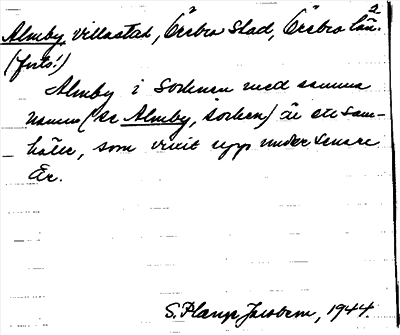 2
Almby, villastad, Örebro Stad, Örebro län.
(forts.)
Almby i Socknen med samma
namn (se Almby, socken) är ett sam-
hälle, som vuxit upp under senare
år.
S. Jacobsen, 1944.